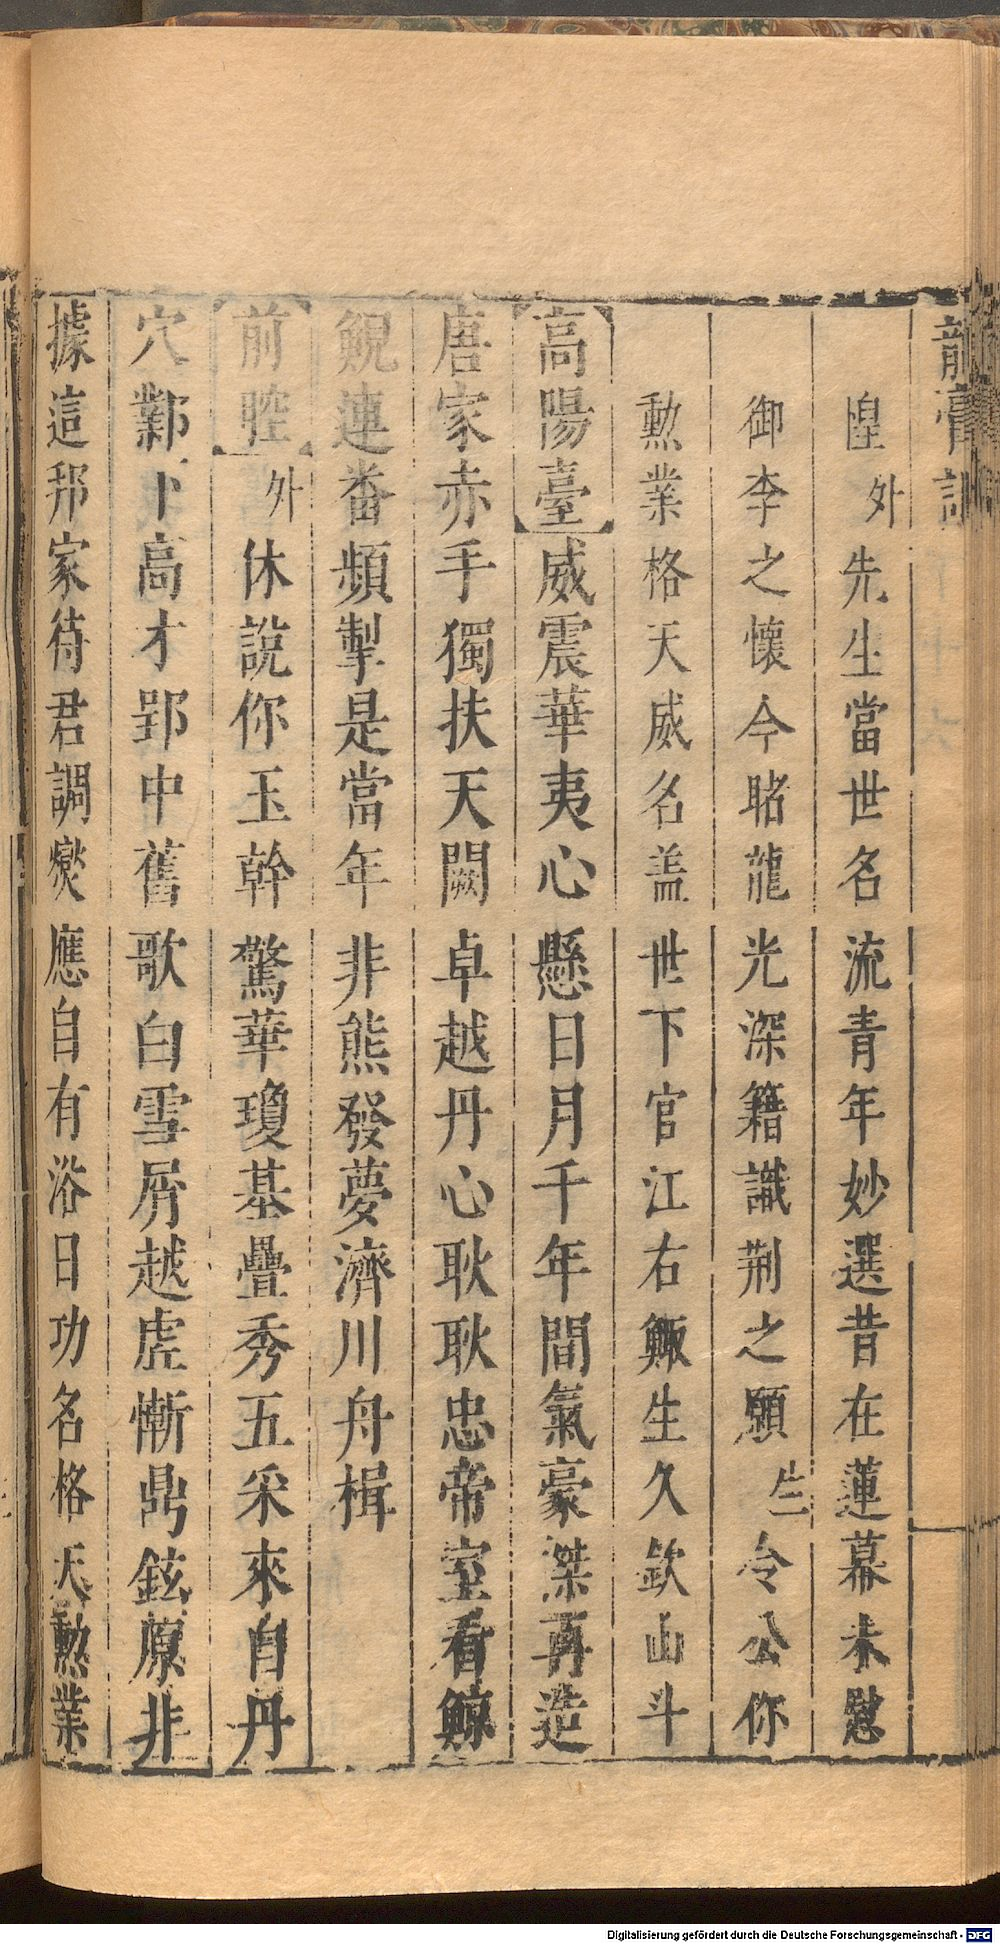 龍膏記
惶外先生當世名流青年妙選昔在蓮幕未慰
御李之懷今睹龍光深籍識荆之願生令公你
勲業格天威名盖世下官江右鯫生久欽山斗
高陽臺威震華夷心懸日月千年間氣豪傑再造
唐家赤手獨扶天闕卓越丹心耿耿忠帝室看鯨
鯢連番頻掣是當年非熊發夢濟川舟楫
前腔外休說你玉幹驚華瓊基疊秀五采來自丹
穴鄴下高才郢中舊歌白雪屑越虎慚鼎鉉原非
據這邦家待君調爕應自有浴日功名格天勲業
Digitalisierung gefördert durch die Deutsche Forschungsgemeinschaft - DFG